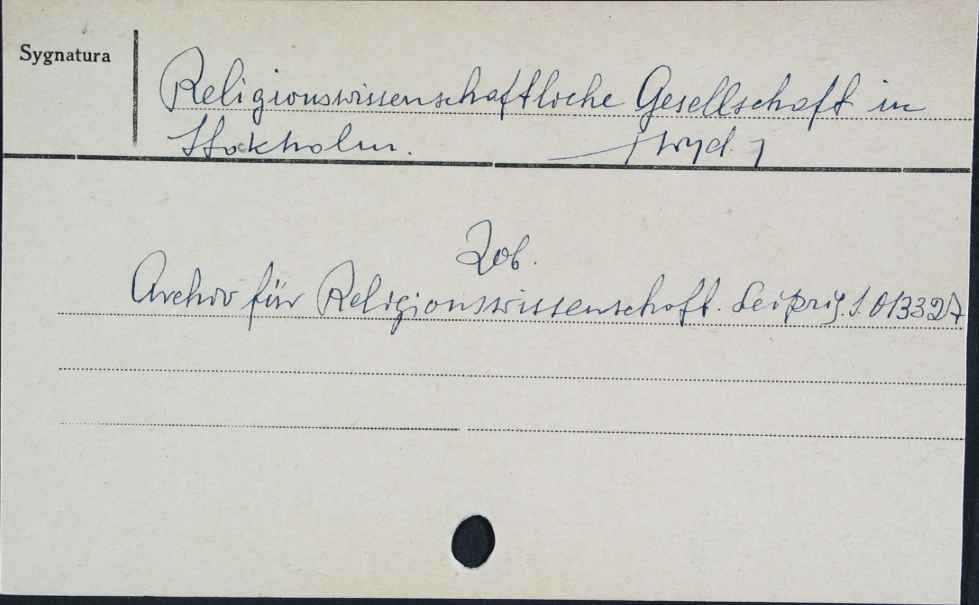 Sygnatura
Religionswissenschaftliche Gesellschaft in
Stockholm. [wyd.]
Zob.
Archiv für Religionswissenschaft. Leipzig.